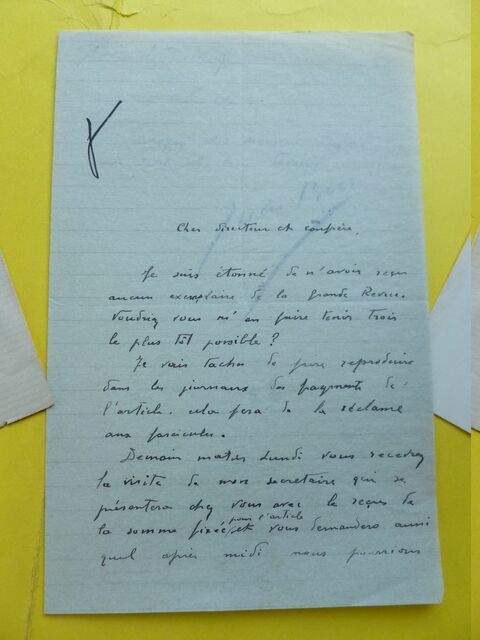 Cher directeur et confrère,
Je suis étonné de n'avoir reçu
aucun exemplaire de la Grande Revue.
Voudriez vous m'en faire tenir trois
le plus tôt possible ?
Je vais tacher de faire reproduire
dans les journaux des fragments de
l'article. cela fera de la réclame
aux fascicules.
Demain matin Lundi vous recevrez
la visite de mon secretaire qui se
présentera chez vous avec le reçu de
la somme fixée pour l'article et vous demandera aussi
quel après midi nous pourrions